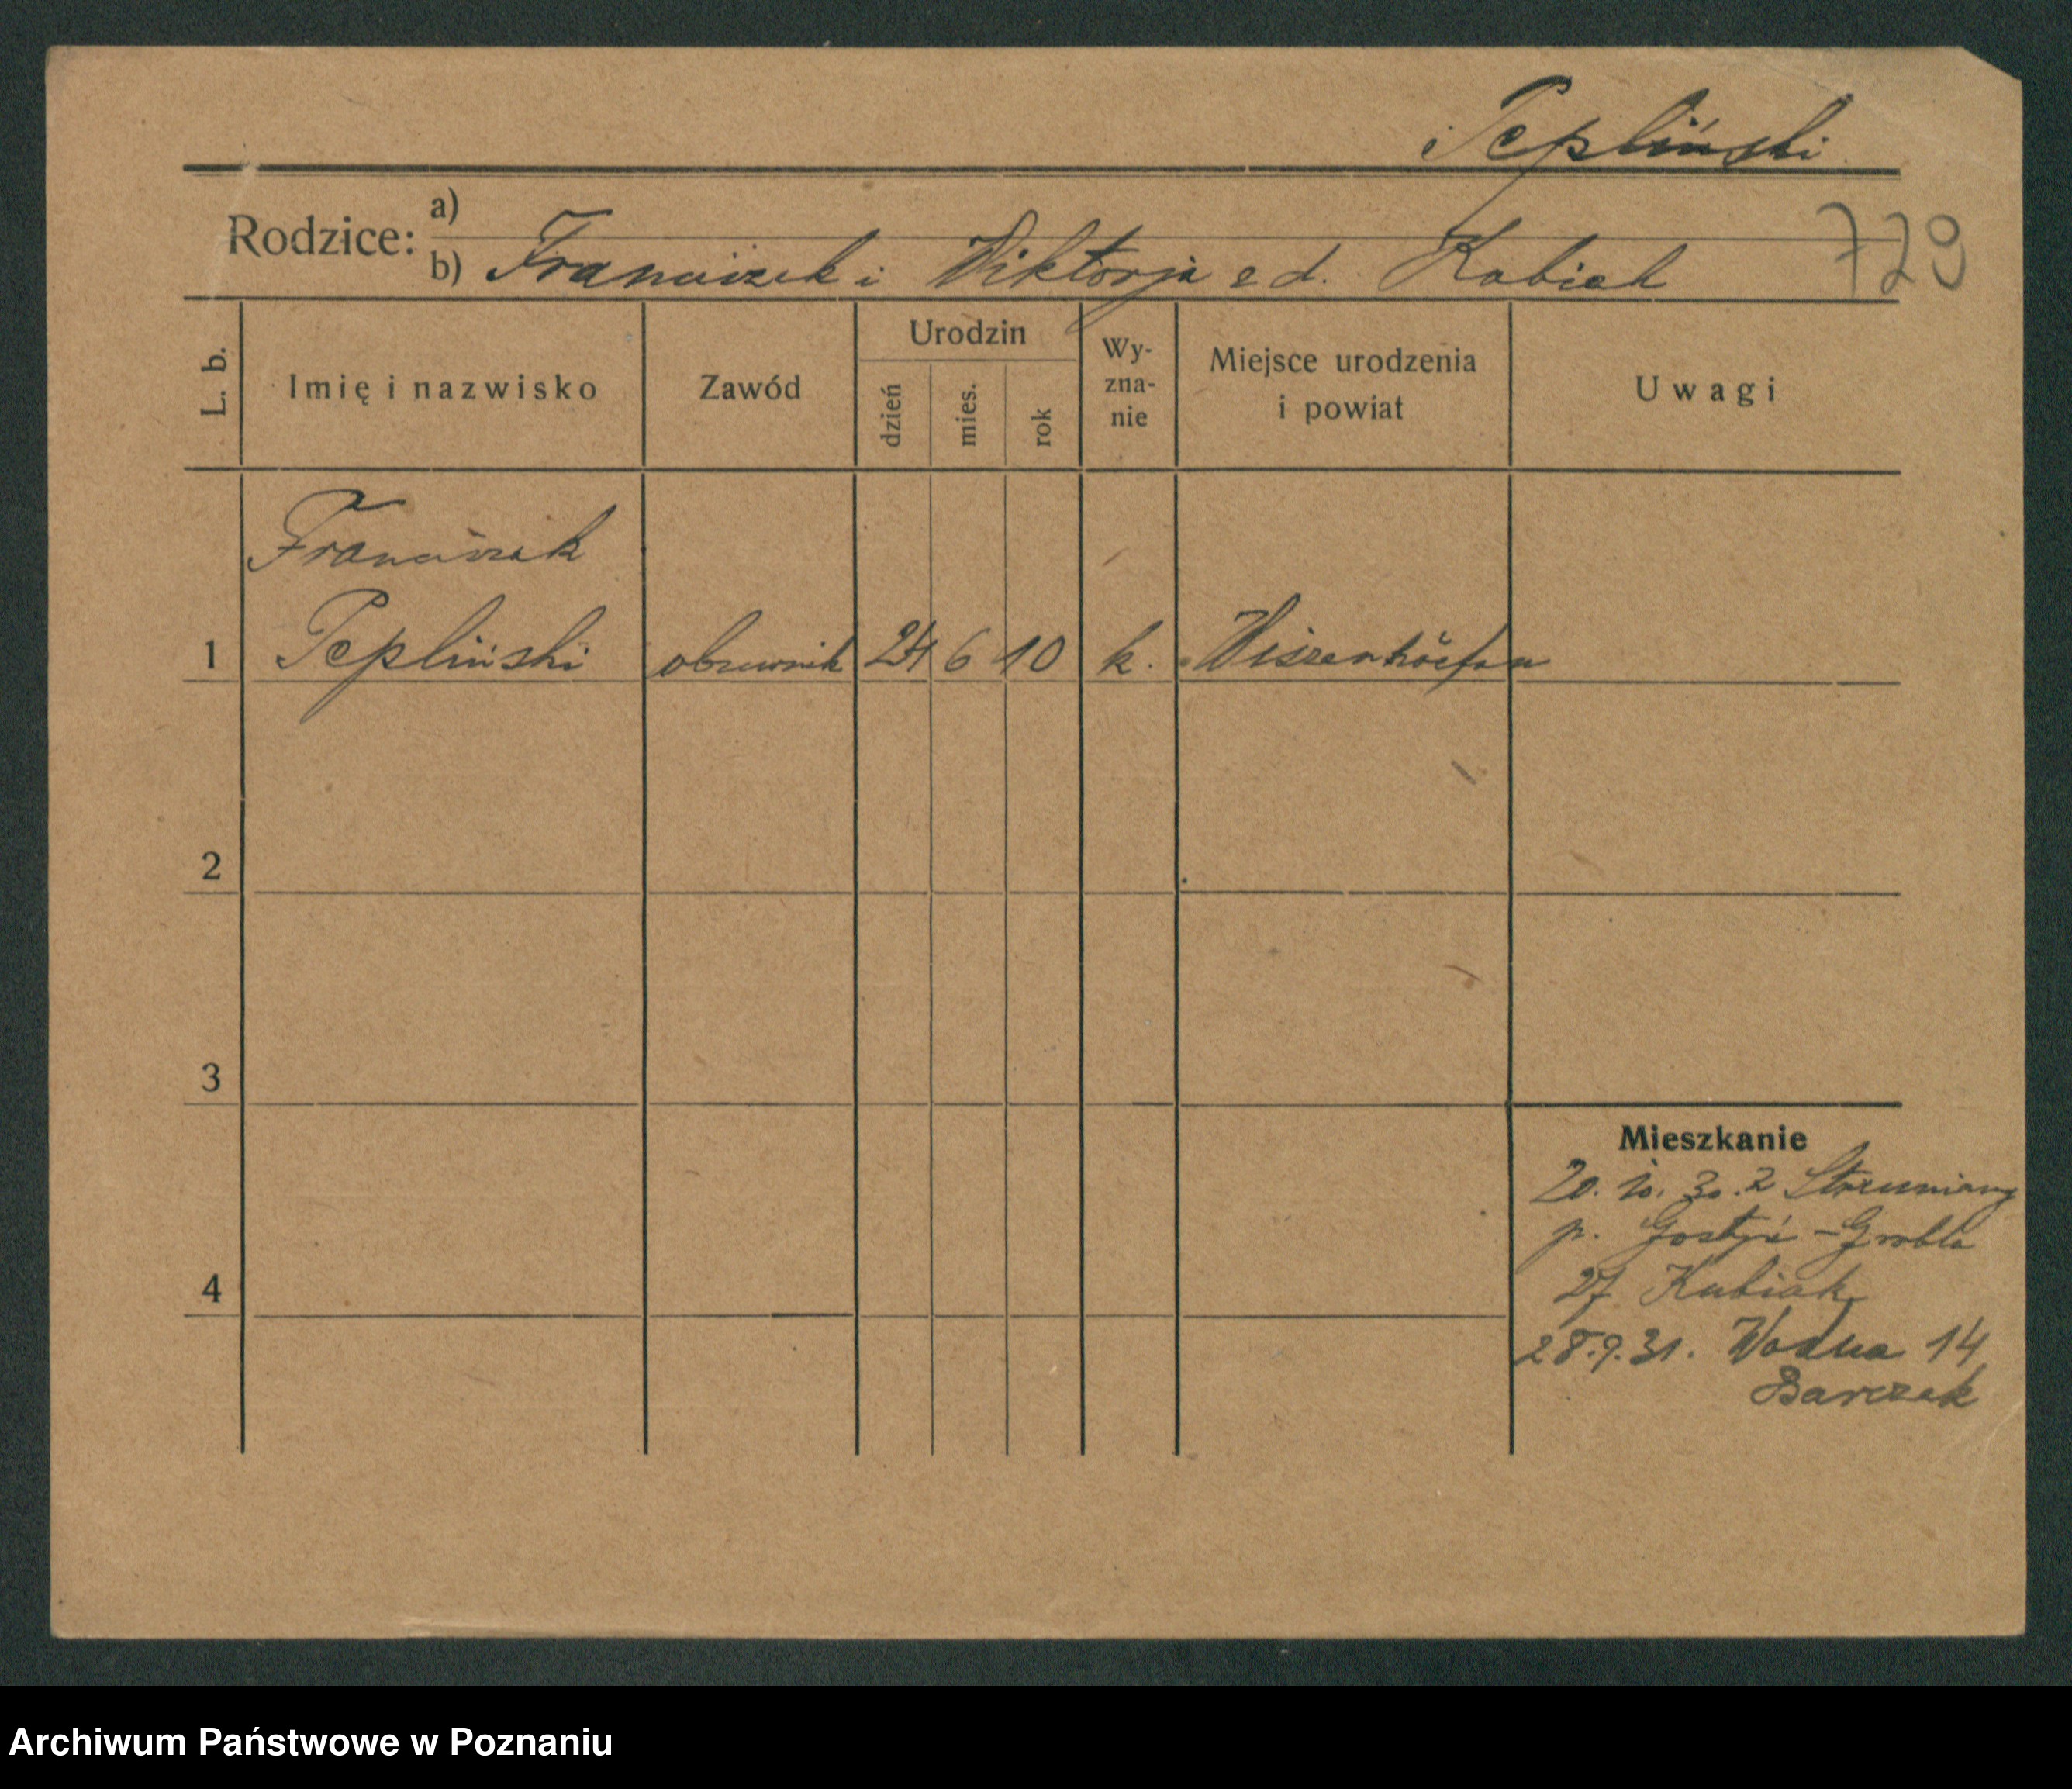 Tepliński
Rodzice: a)
b) Franciszek i Wiktorja z d. Kubiak
729
L. b.
Imię i nazwisko
Zawód
Urodzin
dzień
mies.
rok
Wy-
zna-
nie
Miejsce urodzenia
i powiat
Uwagi
Franciszek
1 Tepliński obuwnik 24 6 10 k.
2
3
4
Mieszkanie
20. 10. 30. z Strumiany
p. Gostyń - Grobla
27 Kubiak
28.9.31. Wodna 14
Barczak
Archiwum Państwowe w Poznaniu